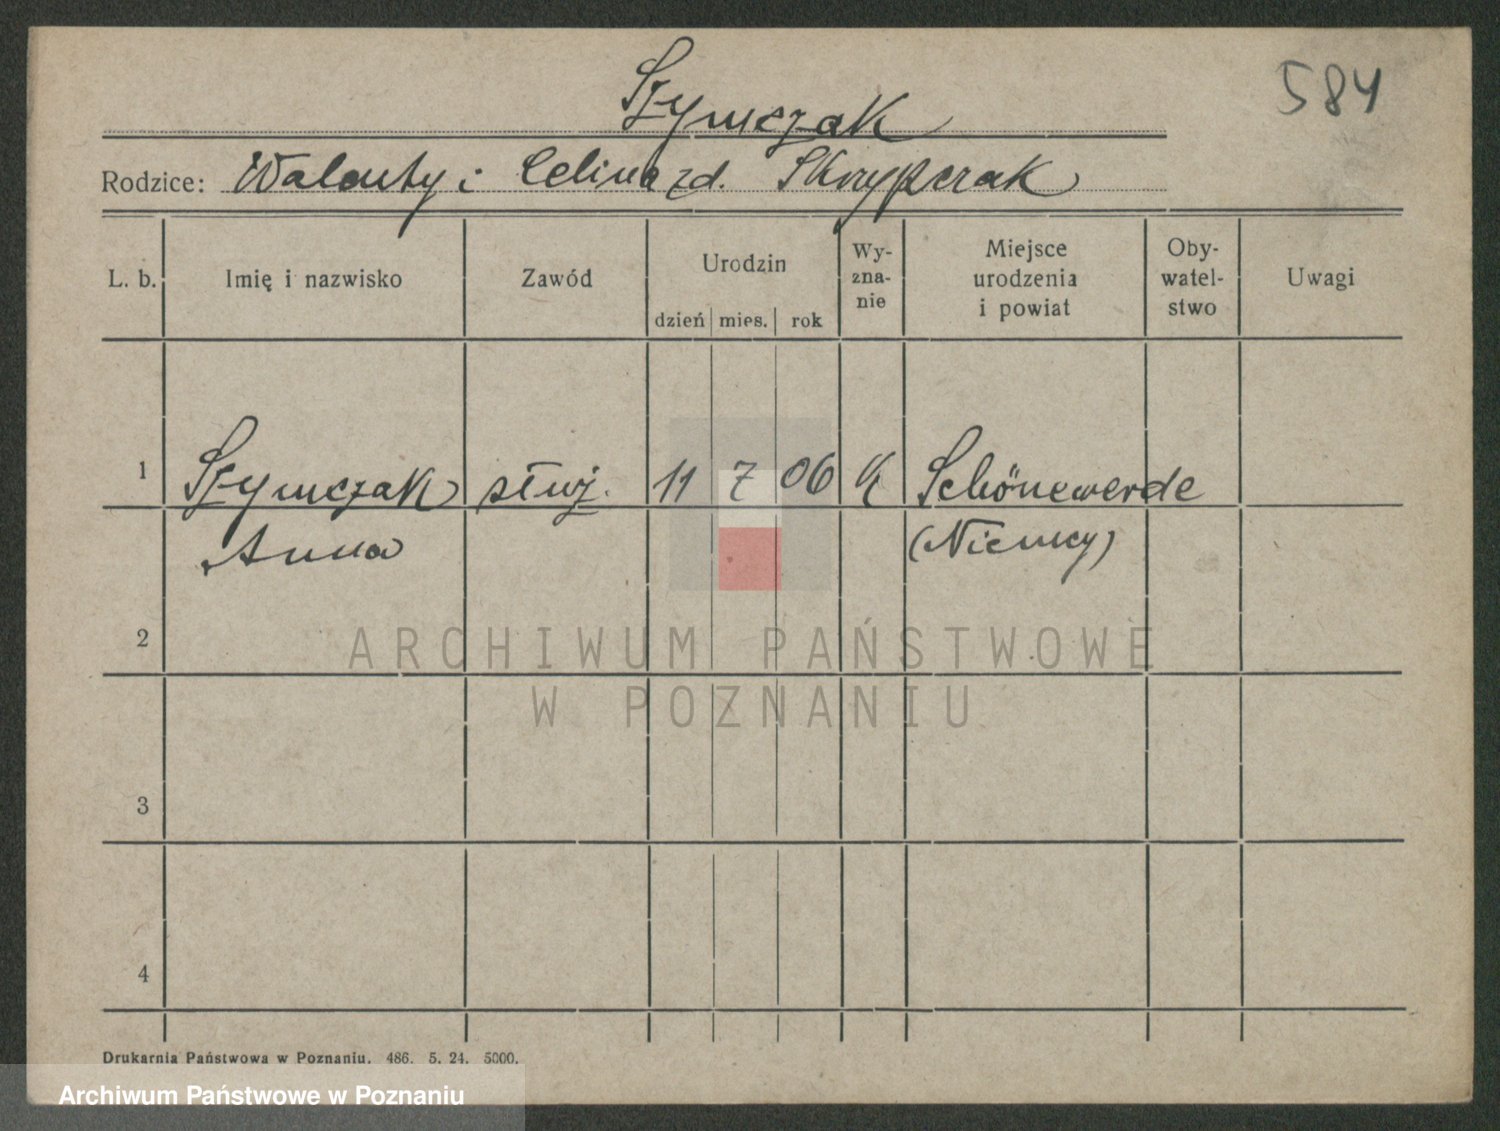 584
Szymczak
Rodzice: Walenty i Celina zd. Skrzypczak
L. b.
Imię i nazwisko
Zawód
Urodzin
dzień mies. rok
Wy-
zna-
nie
Miejsce
urodzenia
i powiat
Oby-
watel-
stwo
Uwagi
1 Szymczak służ. 11 7 06 K Schönewerde
Anna (Niemcy)
2
ARCHIWUM PAŃSTWOWE
W POZNANIU
3
4
Drukarnia Państwowa w Poznaniu. 486. 5. 24. 5000.
Archiwum Państwowe w Poznaniu